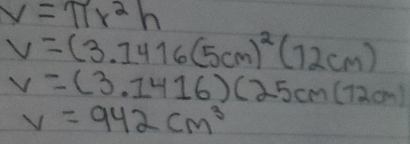 V = πr²h
V = (3.1416(5cm)²(12cm)
V = (3.1416)(25cm(12cm)
V = 942 cm³